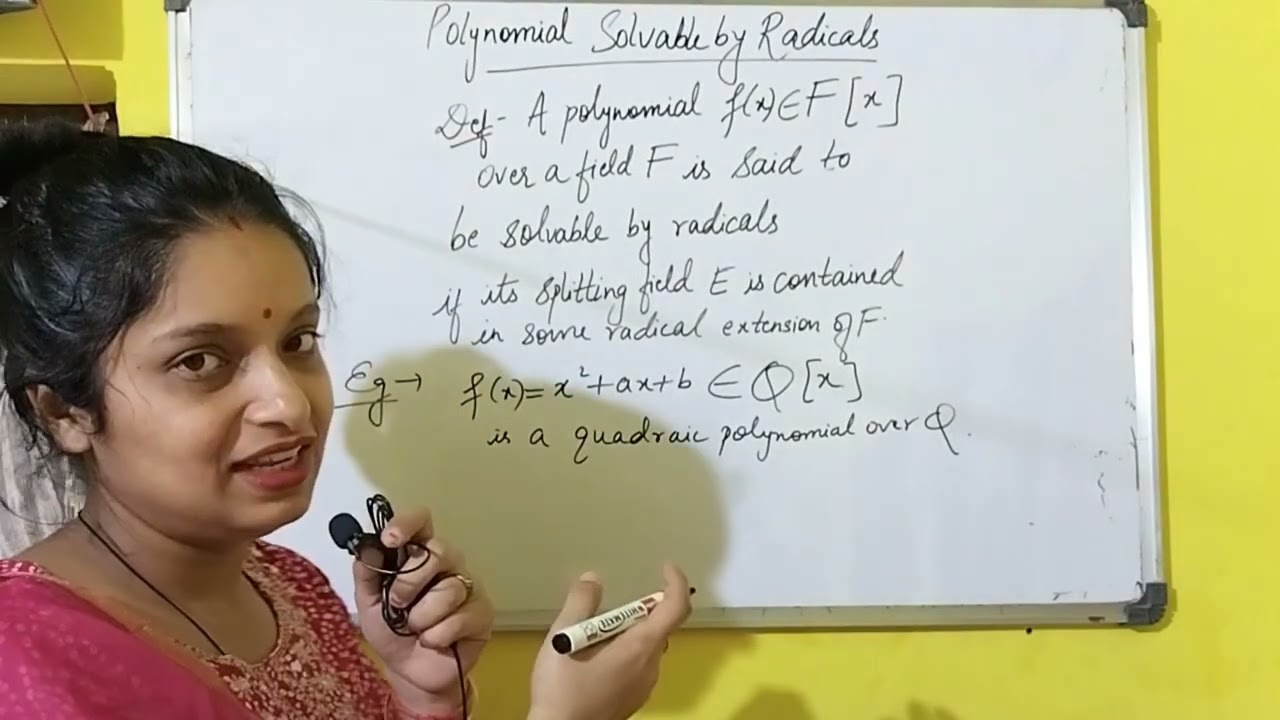 Polynomial Solvable by Radicals
Def- A polynomial f(x)∈F[x]
over a field F is said to
be solvable by radicals
if its splitting field E is contained
in some radical extension of F.
Eg → f(x)= x²+ax+b ∈ Q[x]
is a quadraic polynomial over Q.
WHITEMATE